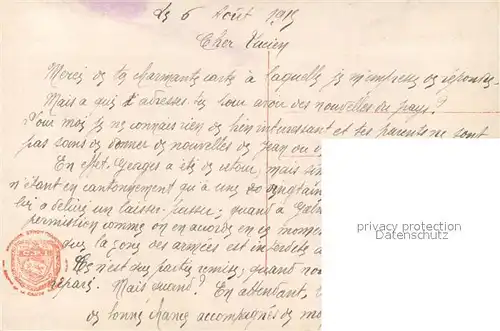 Le 6 Août 1915
Cher Lucien
Merci de ta charmante carte à laquelle je m'empresse de répondre.
Mais à qui t'adresses tu pour avoir des nouvelles du pays?
Pour moi je ne connais rien de bien interessant et tes parents ne sont
pas sans donner de nouvelles de Jean ou
En effet, Georges a été de retour, mais
n'étant en cantonnement qu'à une vingtaine
lui a délivré un laisser-passer; quand à
permission comme on en accorde en ce moment
que la zone des armées est interdite
Ce n'est que partie remise, quand
réparé. Mais quand? En attendant,
de bonne chance accompagnés de
privacy protection
Datenschutz